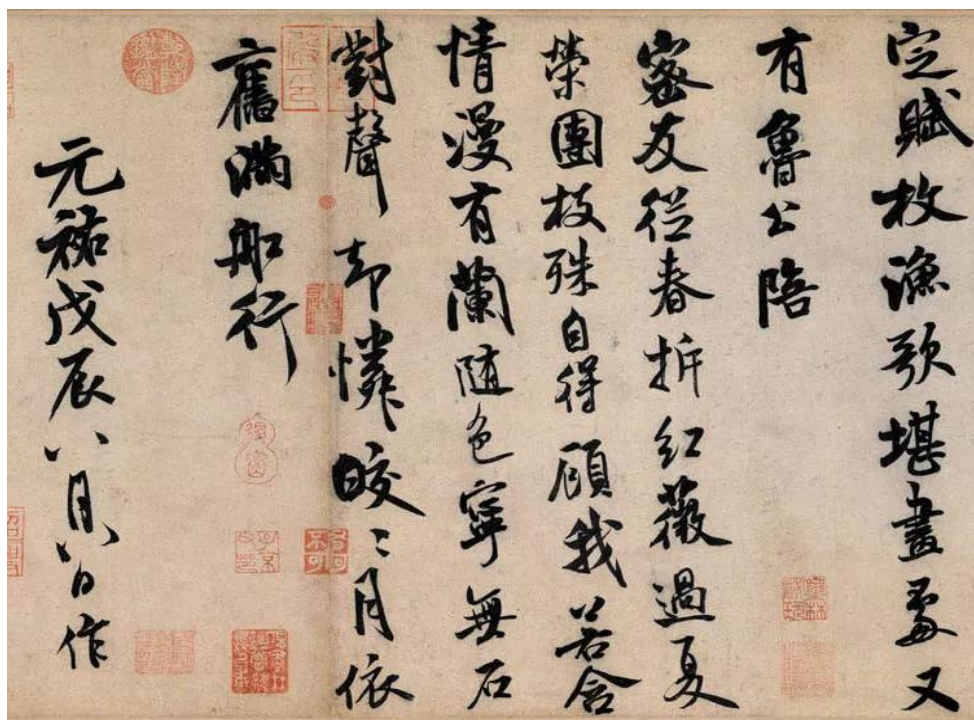 定賦枚漁歌堪畫處又
有魯公陪
密友從春拆紅薇過夏
榮團枝殊自得顧我若含
情漫有蘭隨色寧無石
對聲却憐晈〻月依
舊滿船行
元祐戊辰八月八日作